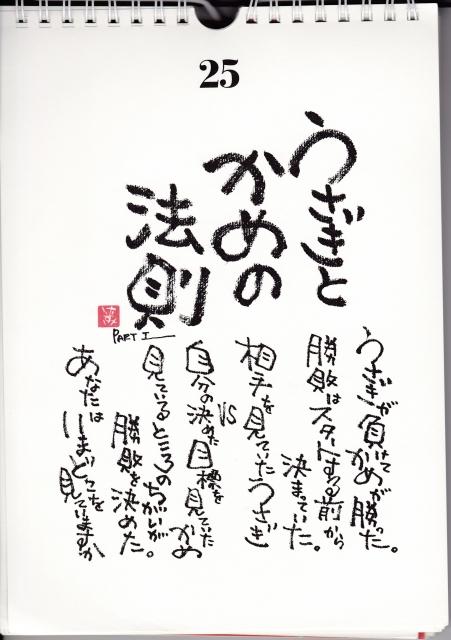 25
うさぎと
かめの
法則
PART I
うさぎが負けてかめが勝った。
勝敗はスタートする前から
決まっていた。
相手を見ていたうさぎ
VS
自分の決めた目標を
見ていたかめ
見ているところのちがいが。
勝敗を決めた。
あなたは いま どこを
見ていますか